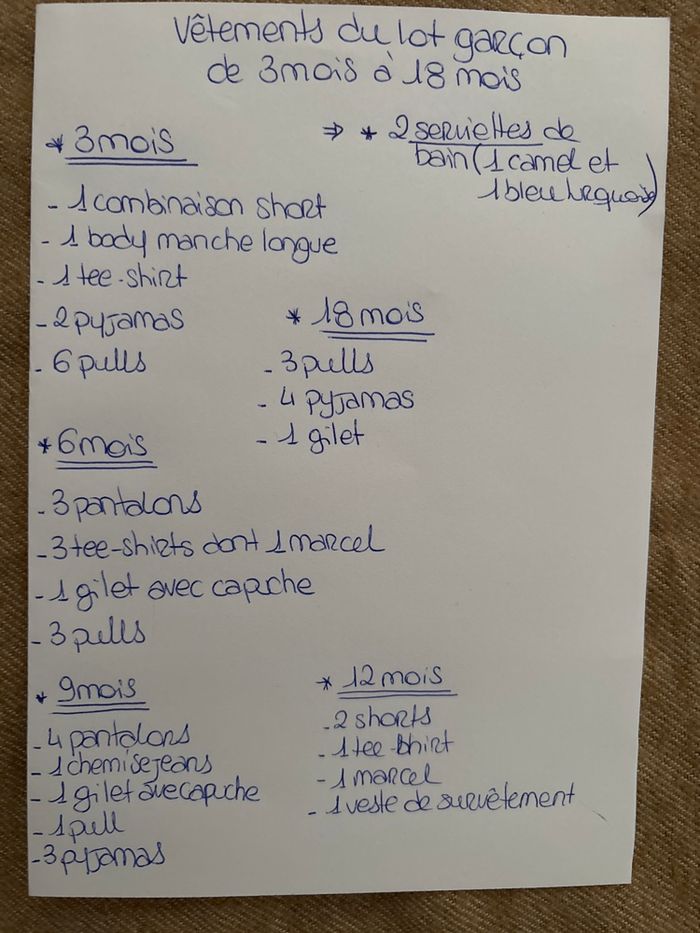 Vêtements du lot garçon
de 3mois à 18 mois
* 3mois
⇒ * 2 serviettes de
bain (1 camel et
1 bleu turquoise)
- 1 combinaison short
- 1 body manche longue
- 1 tee-shirt
- 2 pyjamas
- 6 pulls
* 18 mois
- 3 pulls
- 4 pyjamas
- 1 gilet
* 6mois
- 3 pantalons
- 3 tee-shirts dont 1 marcel
- 1 gilet avec capuche
- 3 pulls
* 9mois
- 4 pantalons
- 1 chemise jeans
- 1 gilet avec capuche
- 1 pull
- 3 pyjamas
* 12 mois
- 2 shorts
- 1 tee-shirt
- 1 marcel
- 1 veste de survêtement